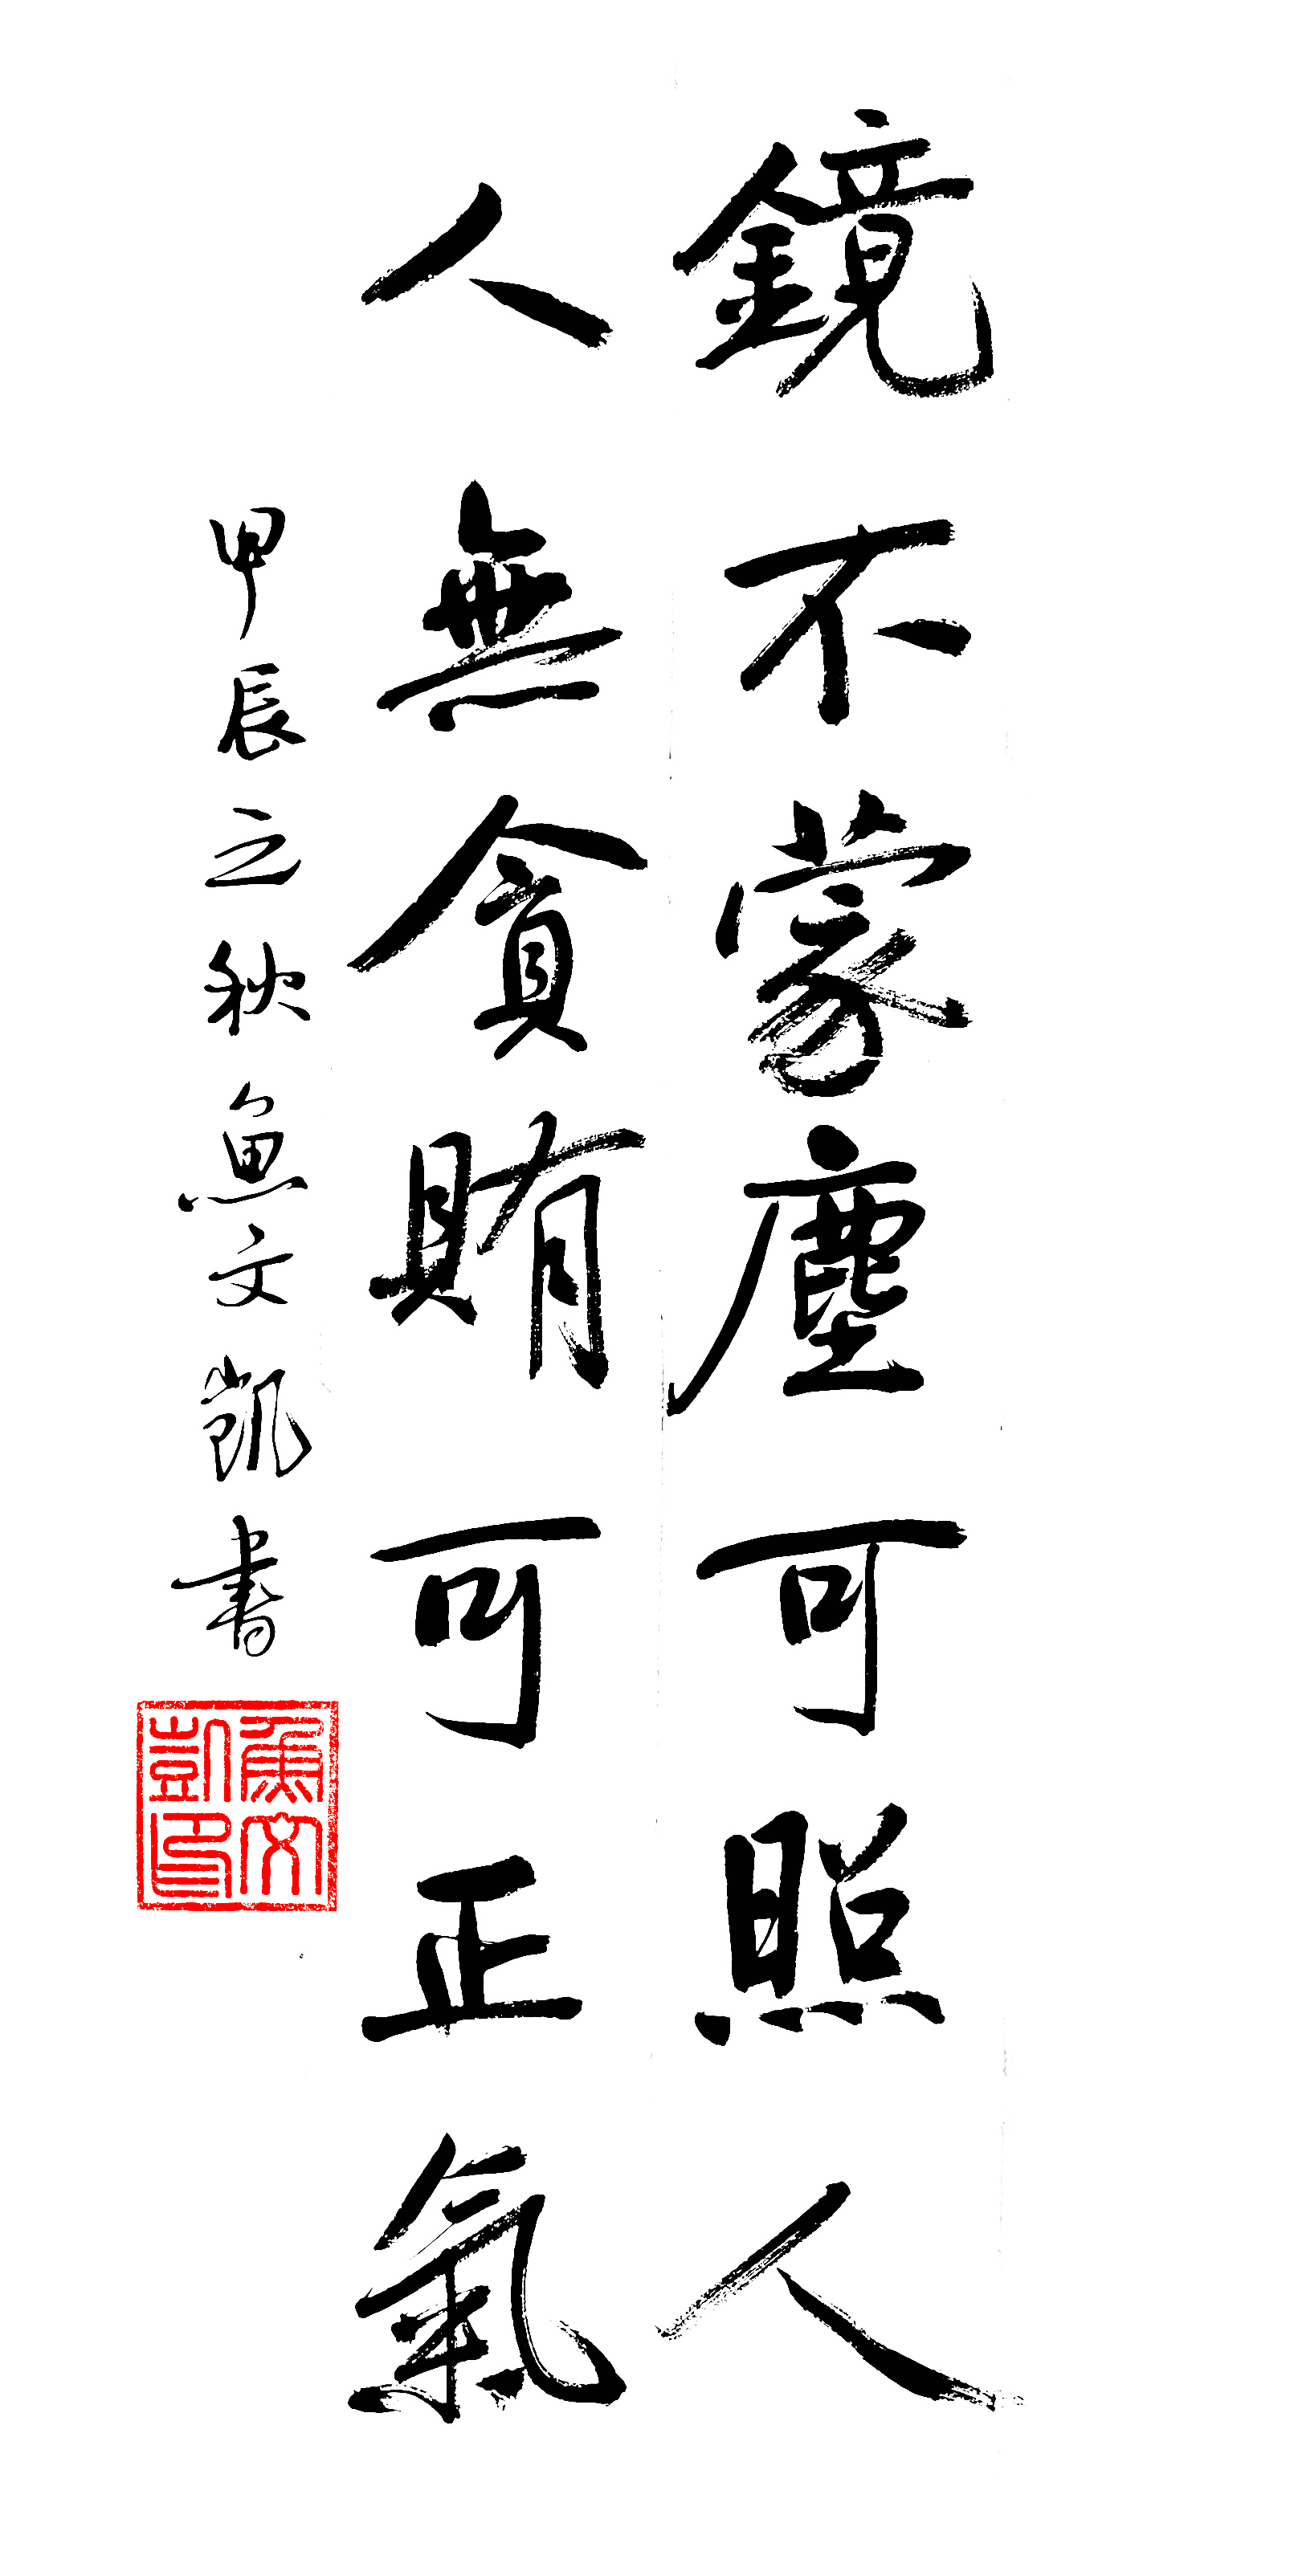 鏡不蒙塵可照人
人無貪賄可正氣
甲辰之秋魚文凱書
魚文凱印